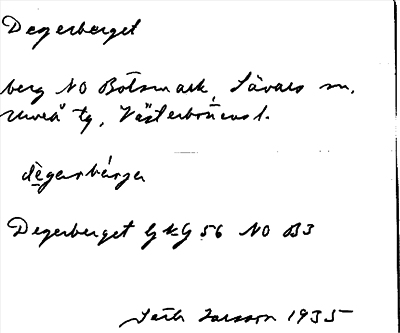 Degerberget
berg NO Botsmark, Sävars sn,
Umeå tg, Västerbottens l.
dègarbárga
Degerberget GKG 56 NO B3
Larsson 1935